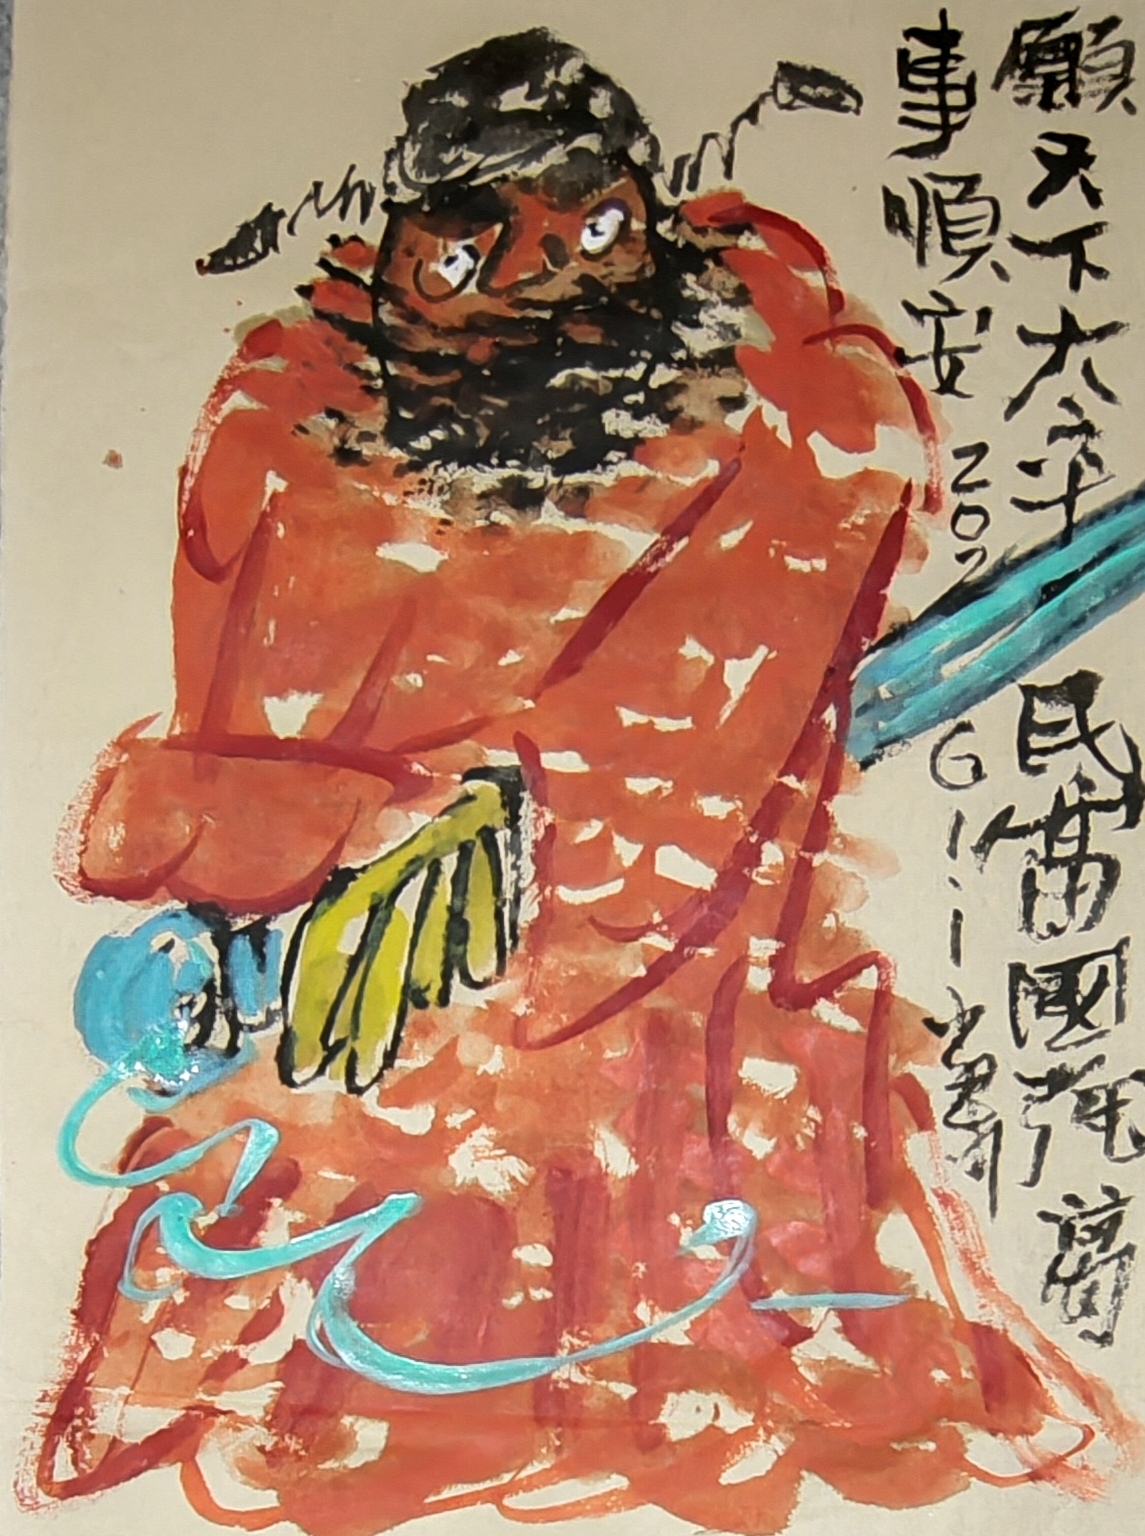 願天下太平民富國強萬
事順安 2026.1.1